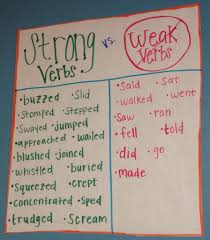 Strong vs. Weak
Verbs Verbs
•buzzed •Slid
•Stomped Stepped
•Swayed •jumped
•approached •wailed
•blushed •joined
•whistled •buried
•Squeezed •crept
•concentrated •sped
•trudged •Scream
•Said •Sat
•walked •went
•Saw •ran
•fell •told
•did •go
•made